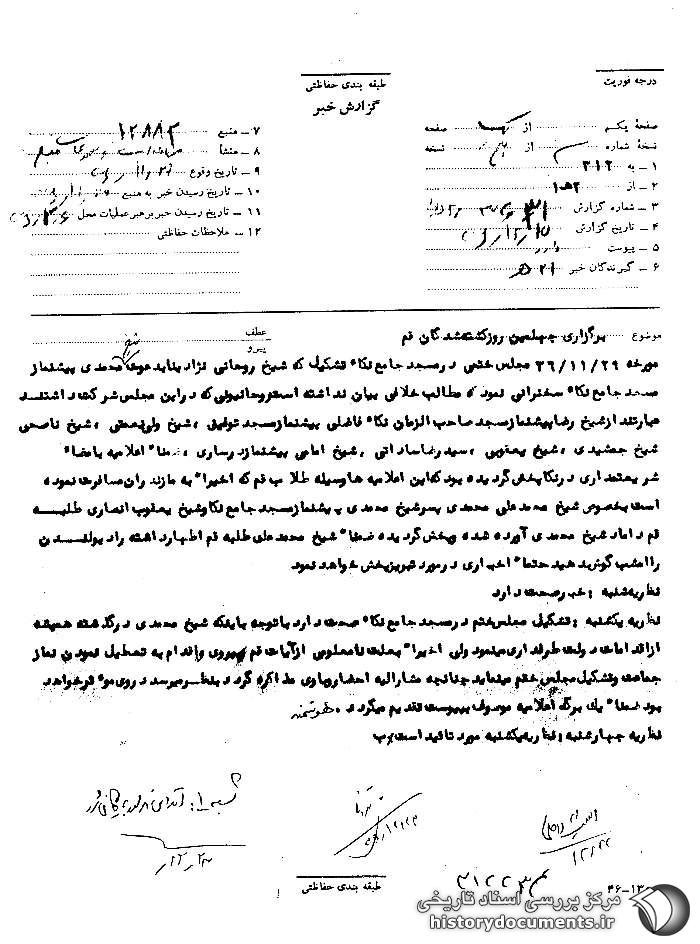 درجه فوریت
طبقه بندی حفاظتی
گزارش خبر
صفحهٔ یکم از صفحه
نسخهٔ شماره از نسخه
۱ ـ به ۳۱۲
۲ ـ از
۳ ـ شماره گزارش
۴ ـ تاریخ گزارش
۵ ـ پیوست دارد
۶ ـ گیرندگان خبر ۲۱ ه
۷ ـ منبع ۱۲۸۸۳
۸ ـ منشأ
۹ ـ تاریخ وقوع
۱۰ ـ تاریخ رسیدن خبر به منبع
۱۱ ـ تاریخ رسیدن خبر برهبر عملیات محل
۱۲ ـ ملاحظات حفاظتی
موضوع برگزاری چهلمین روز کشته‌شدگان قم
عطف
پیرو
مورخه ۳۶/۱۱/۲۹ مجلس ختمی در مسجد جامع نکاء تشکیل که شیخ روحانی نژاد بنا بدعوت شیخ محمدی پیشنماز
مسجد جامع نکاء سخنرانی نمود که مطالب خلافی بیان نداشته است روحانیونی که در این مجلس شرکت داشتند
عبارتند از شیخ رضا پیشنماز مسجد صاحب الزمان نکاء فاضلی پیشنماز مسجد توفیق ، شیخ ولی نعمتی ، شیخ ناصحی
شیخ جمشیدی ، شیخ یعقوبی ، سید رضا ساداتی , شیخ امامی پیشنماز درساری ، ضمنا" اعلامیه بامضاء
شریعتمداری در نکا پخش گردیده بود که این اعلامیه ها وسیله طلاب قم که اخیرا" به مازندران مسافرت نموده
است بخصوص شیخ محمد علی محمدی پسر شیخ محمدی پیشنماز مسجد جامع نکا و شیخ یعقوب انصاری طلبه
قم داماد شیخ محمدی آورده شده و پخش گردیده ضمنا" شیخ محمد علی طلبه قم اظهار داشته رادیو لندن
را امشب گوش دهید حتما" اخباری در مورد تبریز پخش خواهد نمود
نظریه شنبه : خبر صحت دارد
نظریه یکشنبه : تشکیل مجلس ختم در مسجد جامع نکاء صحت دارد با توجه باینکه شیخ محمدی در گذشته همیشه
از اقدامات دولت طرفداری مینمود ولی اخیرا" بعلت نامعلومی از آیات قم پیروی و اقدام به تعطیل نمودن نماز
جماعت و تشکیل مجلس ختم مینماید چنانچه مشارالیه احضار و باوی مذاکره گردد بنظر میرسد در روی موثر خواهد
بود ضمنا" یک برگ اعلامیه موصوف بپیوست تقدیم میگردد .
نظریه چهارشنبه : نظریه یکشنبه مورد تائید است
طبقه بندی حفاظتی
۴۶-۱۳
مرکز بررسی اسناد تاریخی
historydocuments.ir